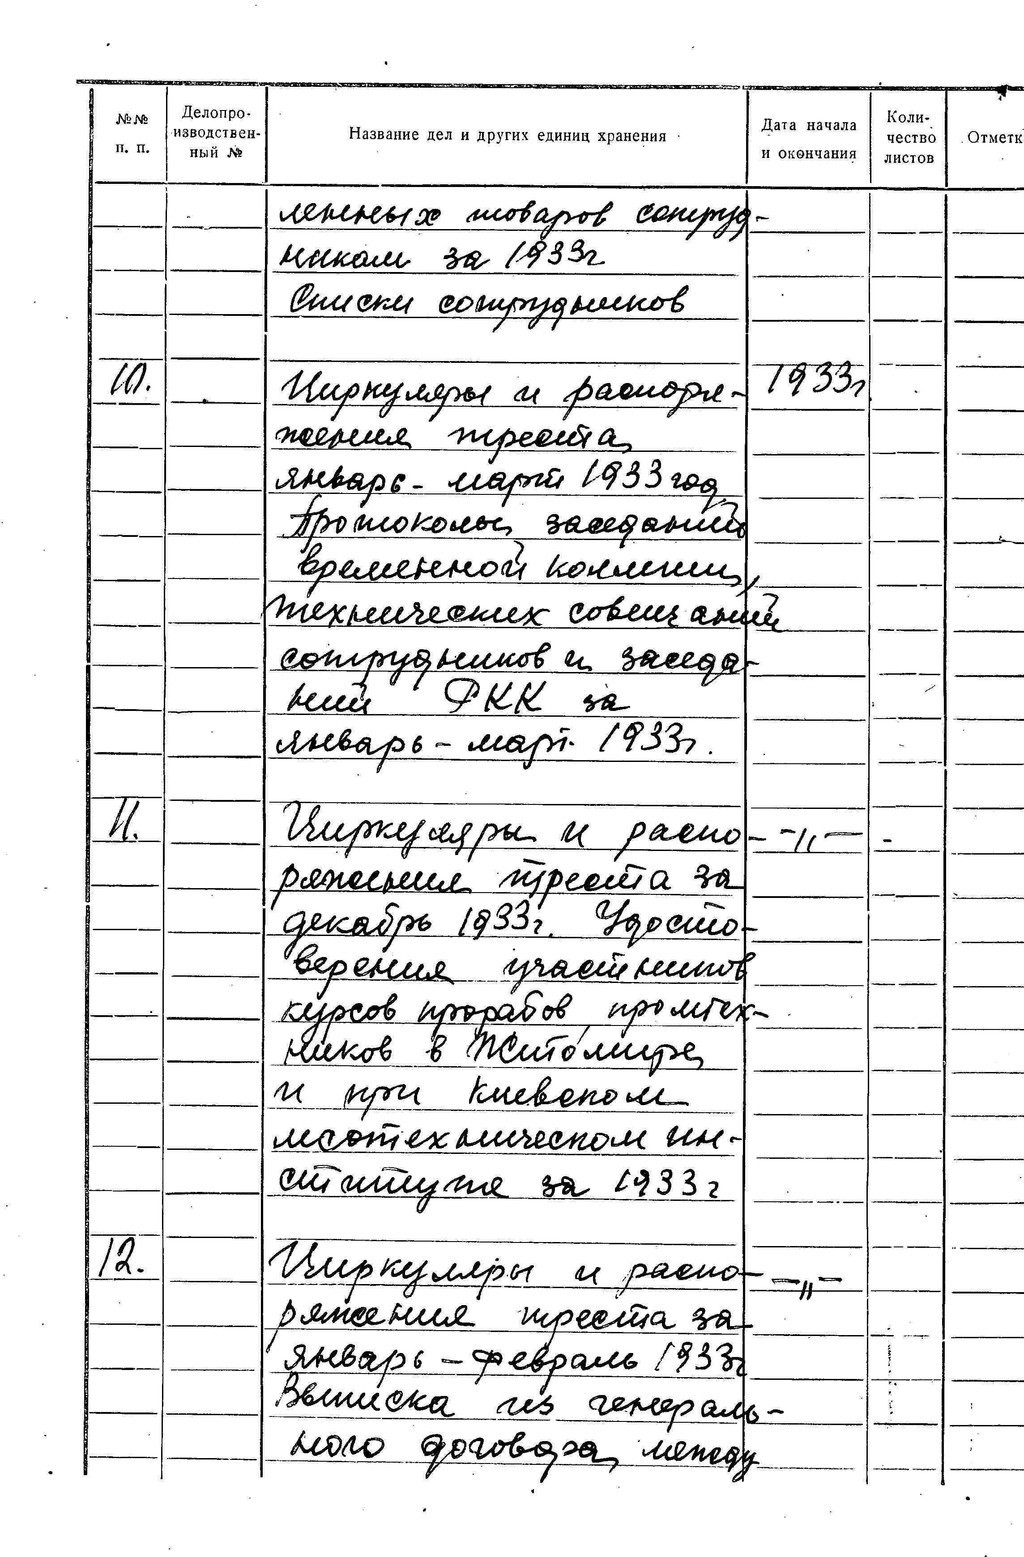 №№ п. п. Делопроизводственный № Название дел и других единиц хранения Дата начала и окончания Количество листов Отметк
ленных товаров сотруд-
никам за 1933г
Списки сотрудников
10. Циркуляры и распоря- 1933г
жения треста
январь - март 1933 год
Протоколы заседаний
временной коллегии,
технических совещаний
сотрудников и заседа-
ний РКК за
январь - март. 1933г.
11. Циркуляры и распо- -"- -
ряжения треста за
декабрь 1933г. Удосто-
верения участников
курсов прорабов промтех-
ников в Житомире
и при Киевском
лесотехническом ин-
ституте за 1933г
12. Циркуляры и распо- -"-
ряжения треста за
январь - февраль 1933г
Выписка из генераль-
ного договора между